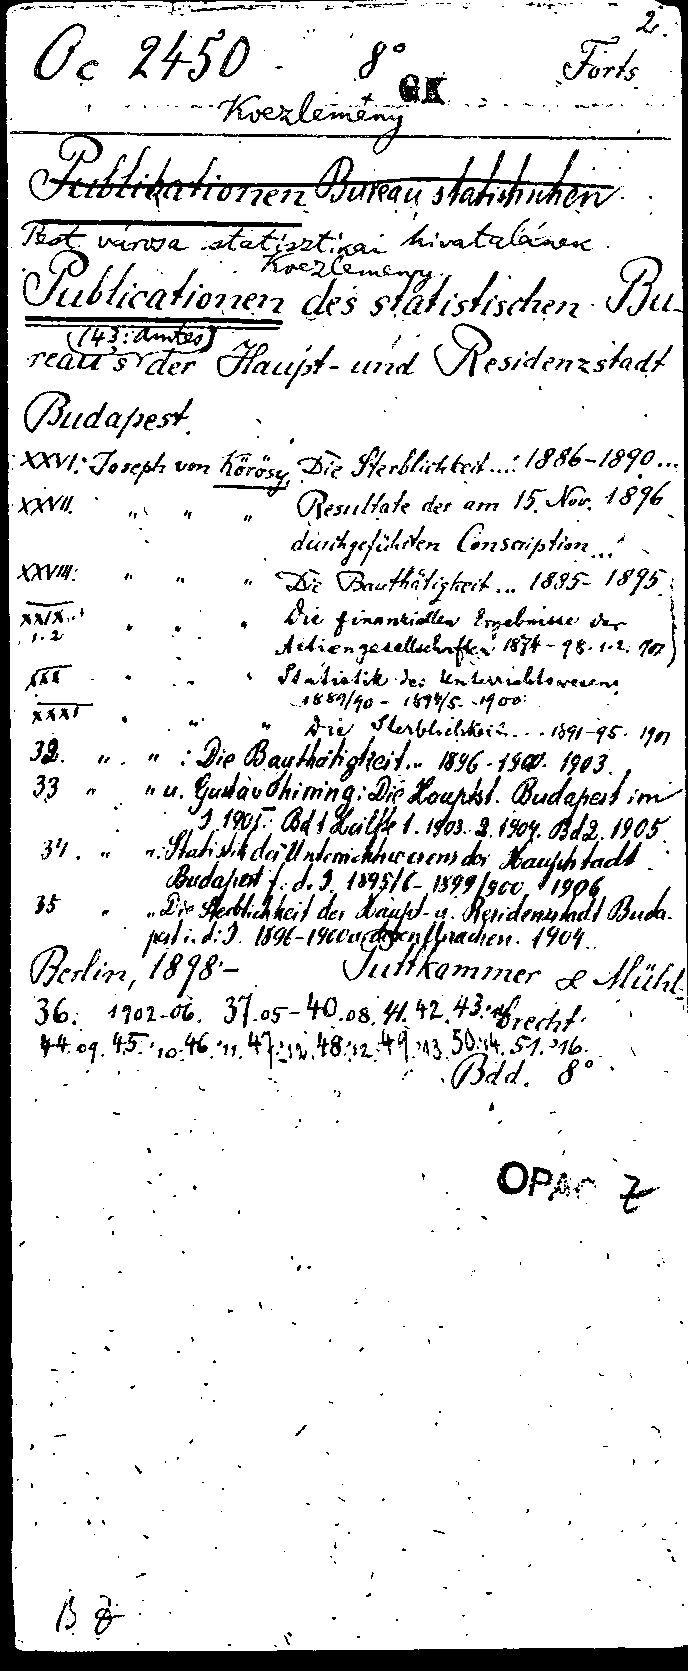 2.
Oc 2450 8° Forts.
GK
Koezlemény
Publikationen Bureau statistischen
Pest városa statisztikai hivatalának
Koezleményi
Publicationen des statistischen Bu-
(43: Amtes)
reau's der Haupt- und Residenzstadt
Budapest.
XXVI: Joseph von Körösy, Die Sterblichkeit...: 1886-1890...
XXVII. " " " Resultate der am 15. Nov. 1896
durchgeführten Conscription...
XXVIII: " " " Die Bauthätigkeit... 1885-1895.
XXIX: " " " Die finanziellen Ergebnisse der
1.2 Actiengesellschaften 1874-98. 1.2. 1901
XXX " " " Statistik des Unterrichtswesens
1889/90 - 1894/5. 1900
XXXI " " " Die Sterblichkeit... 1891-95. 1901
32. " " : Die Bauthätigkeit.. 1896-1900. 1903.
33 " " u. Gustav Thirring: Die Hauptst. Budapest im
J. 1901. Bd 1 Hälfte 1. 1903. 2. 1904. Bd 2. 1905.
34. " " : Statistik des Unterrichtswesens der Hauptstadt
Budapest f. d. J. 1895/6 - 1899/900. 1906
35 " " Die Sterblichkeit der Haupt- u. Residenzstadt Buda-
pest i. d. J. 1896-1900 u. deren Ursachen. 1904.
Berlin, 1898- Puttkammer & Mühl-
brecht.
36. 1902-06. 37.05-40.08. 41. 42. 43:
44.09. 45.:10. 46.:11. 47.:12. 48:12. 49.:13. 50:14. 51.:16.
Bdd. 8°
OPAC Z
B